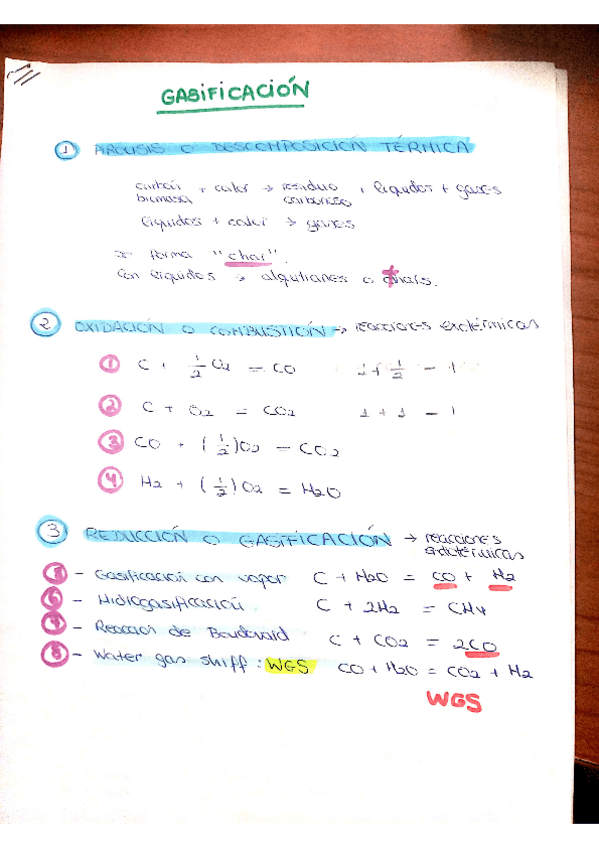 GASIFICACIÓN
① PIRÓLISIS O DESCOMPOSICIÓN TÉRMICA
carbón + calor → residuo + líquidos + gases
biomasa carbonoso
líquidos + calor → gases
forma "char".
Con líquidos → alquitranes o
② OXIDACIÓN O COMBUSTIÓN → reacciones exotérmicas
① C + 1/2 O2 = CO 1 + 1/2 - 1
② C + O2 = CO2 1 + 1 - 1
③ CO + (1/2) O2 = CO2
④ H2 + (1/2) O2 = H2O
③ REDUCCIÓN O GASIFICACIÓN → reacciones
endotérmicas
⑤ - Gasificación con vapor C + H2O = CO + H2
⑥ - Hidrogasificación C + 2H2 = CH4
⑦ - Reacción de Boudouard C + CO2 = 2CO
⑧ - Water gas shiff : WGS CO + H2O = CO2 + H2
WGS